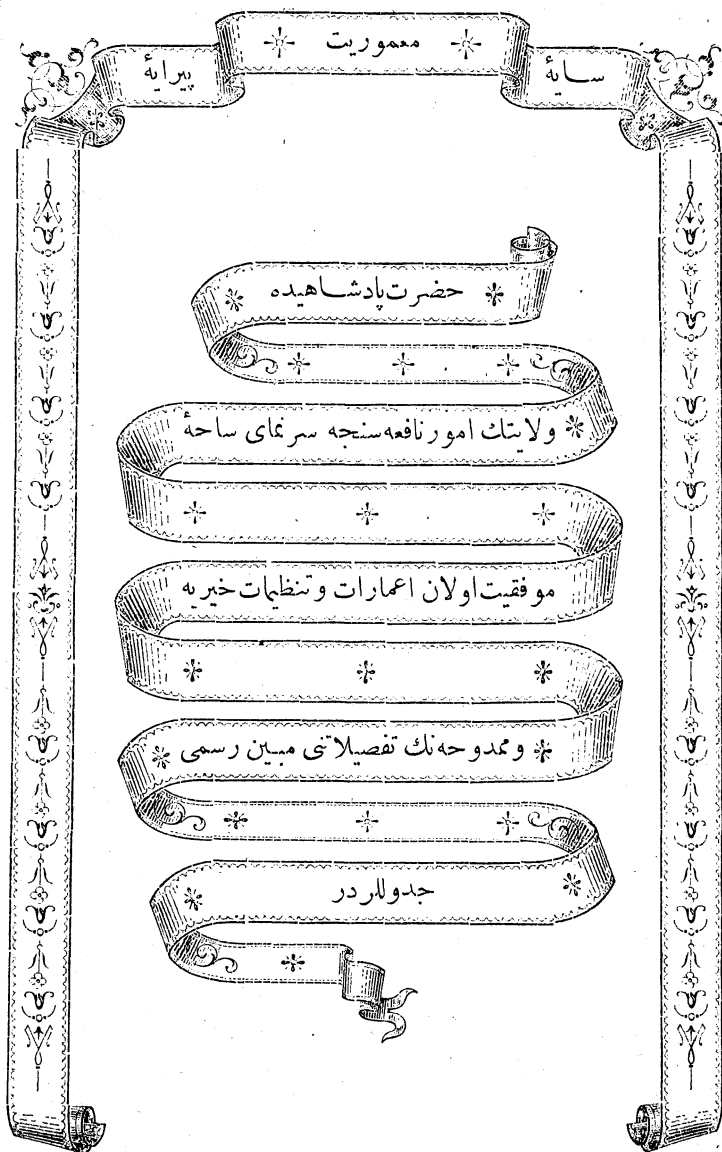 سایۀ معموریت پیرایۀ
حضرت پادشاهیده
ولایتك امور نافعه سنجه سرنمای ساحۀ
موفقیت اولان اعمارات و تنظیمات خیریه
و ممدوحه نك تفصیلاتنی مبین رسمی
جدوللردر